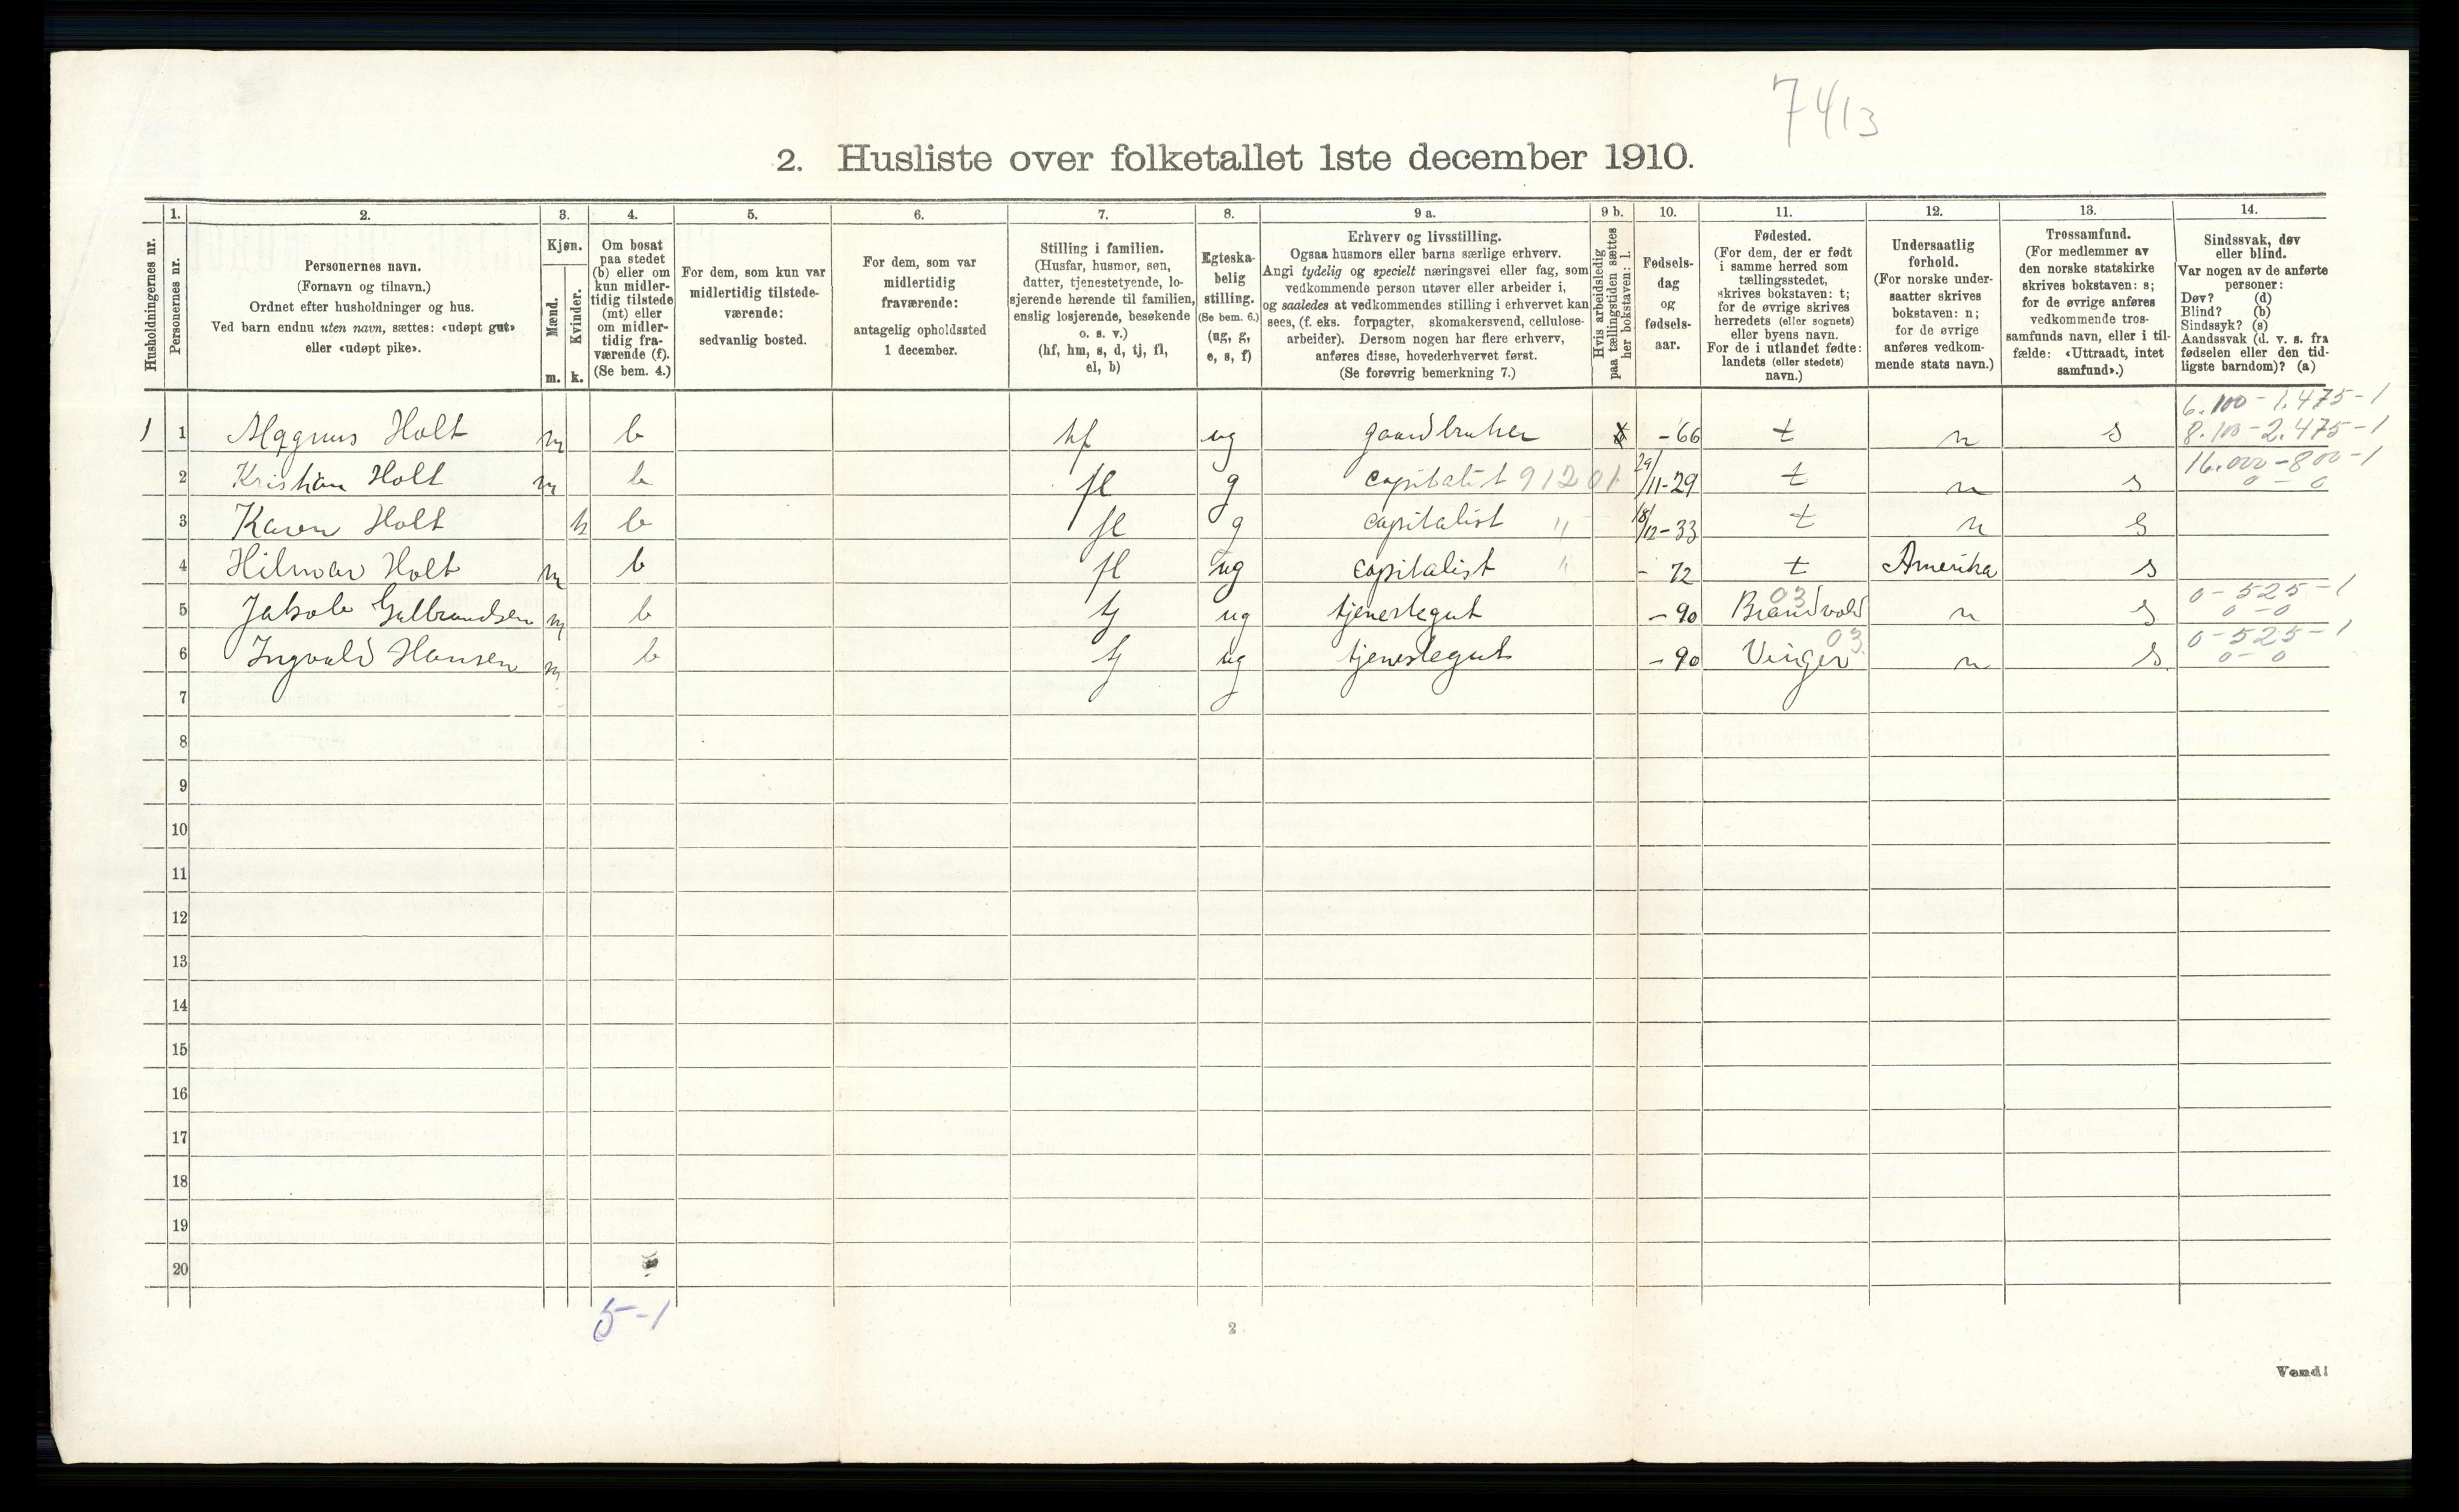 7413
2. Husliste over folketallet 1ste december 1910.
1. 2. 3. 4. 5. 6. 7. 8. 9 a. 9 b. 10. 11. 12. 13. 14.
Husholdningernes nr.
Personernes nr.
Personernes navn.
(Fornavn og tilnavn.)
Ordnet efter husholdninger og hus.
Ved barn endnu uten navn, sættes: «udøpt gut»
eller «udøpt pike».
Kjøn.
Mænd.
Kvinder.
m. k.
Om bosat
paa stedet
(b) eller om
kun midler-
tidig tilstede
(mt) eller
om midler-
tidig fra-
værende (f).
(Se bem. 4.)
For dem, som kun var
midlertidig tilstede-
værende:
sedvanlig bosted.
For dem, som var
midlertidig
fraværende:
antagelig opholdssted
1 december.
Stilling i familien.
(Husfar, husmor, søn,
datter, tjenestetyende, lo-
sjerende hørende til familien,
enslig losjerende, besøkende
o. s. v.)
(hf, hm, s, d, tj, fl,
el, b)
Egteska-
belig
stilling.
(Se bem. 6.)
(ug, g,
e, s, f)
Erhverv og livsstilling.
Ogsaa husmors eller barns særlige erhverv.
Angi tydelig og specielt næringsvei eller fag, som
vedkommende person utøver eller arbeider i,
og saaledes at vedkommendes stilling i erhvervet kan
sees, (f. eks. forpagter, skomakersvend, cellulose-
arbeider). Dersom nogen har flere erhverv,
anføres disse, hovederhvervet først.
(Se forøvrig bemerkning 7.)
Hvis arbeidsledig
paa tællingstiden sættes
her bokstaven: l.
Fødsels-
dag
og
fødsels-
aar.
Fødested.
(For dem, der er født
i samme herred som
tællingsstedet,
skrives bokstaven: t;
for de øvrige skrives
herredets (eller sognets)
eller byens navn.
For de i utlandet fødte:
landets (eller stedets)
navn.)
Undersaatlig
forhold.
(For norske under-
saatter skrives
bokstaven: n;
for de øvrige
anføres vedkom-
mende stats navn.)
Trossamfund.
(For medlemmer av
den norske statskirke
skrives bokstaven: s;
for de øvrige anføres
vedkommende tros-
samfunds navn, eller i til-
fælde: «Uttraadt, intet
samfund».)
Sindssvak, døv
eller blind.
Var nogen av de anførte
personer:
Døv? (d)
Blind? (b)
Sindssyk? (s)
Aandssvak (d. v. s. fra
fødselen eller den tid-
ligste barndom)? (a)
6.100-1.475-1
1 1 Magnus Holt m b hf ug gaardbruker -66 t n s 8.100-2.475-1
16.000-800-1
2 Kristian Holt m b fl g capitalist 91201 29/11-29 t n s 0-0
3 Karen Holt k b fl g capitalist " 18/12-33 t n s
4 Hilmar Holt m b fl ug capitalist " - 72 t Amerika s
03 0-525-1
5 Jakob Gulbrandsen m b tj ug tjenestegut -90 Brandvold n s 0-0
03 0-525-1
6 Ingvald Hansen m b tj ug tjenestegut -90 Vinger n s 0-0
7
8
9
10
11
12
13
14
15
16
17
18
19
20
5-1
2
Vend!